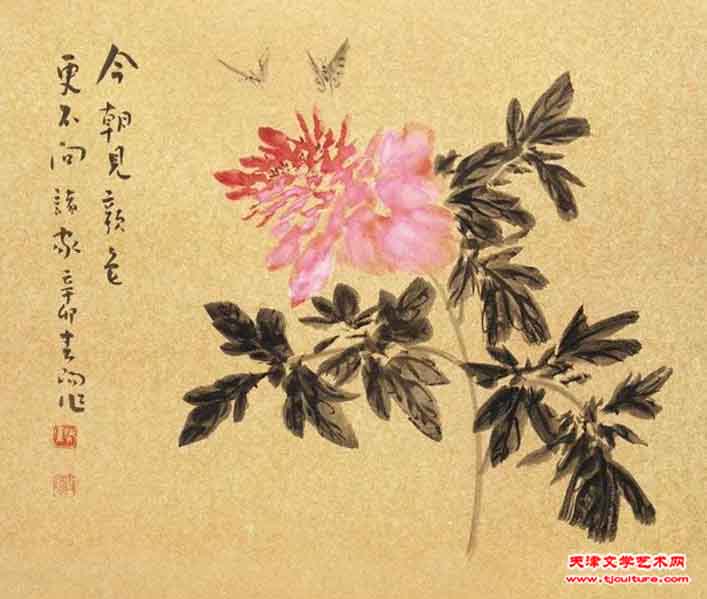 今朝見顏色
更不向諸家 辛卯 作
天津文学艺术网
www.tjculture.com